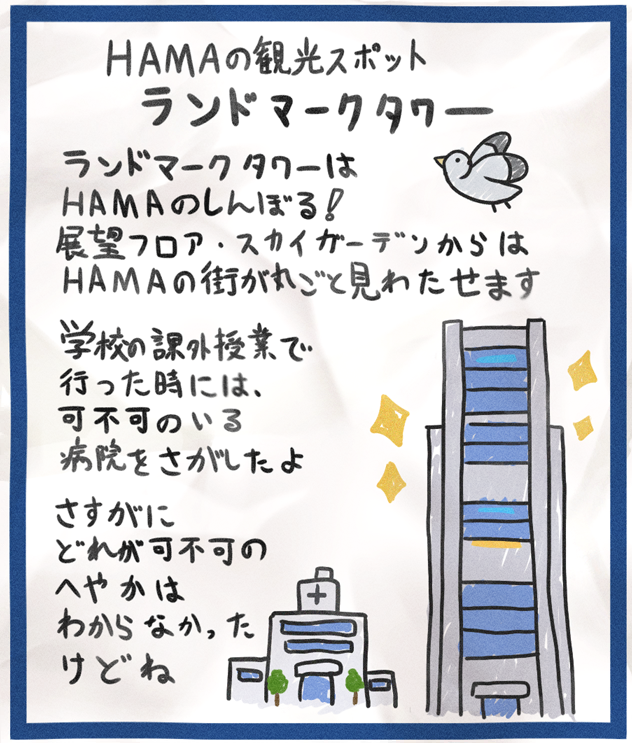 HAMAの観光スポット
ランドマークタワー
ランドマークタワーは
HAMAのしんぼる!
展望フロア・スカイガーデンからは
HAMAの街が丸ごと見わたせます
学校の課外授業で
行った時には、
可不可のいる
病院をさがしたよ
さすがに
どれが可不可の
へやかは
わからなかった
けどね